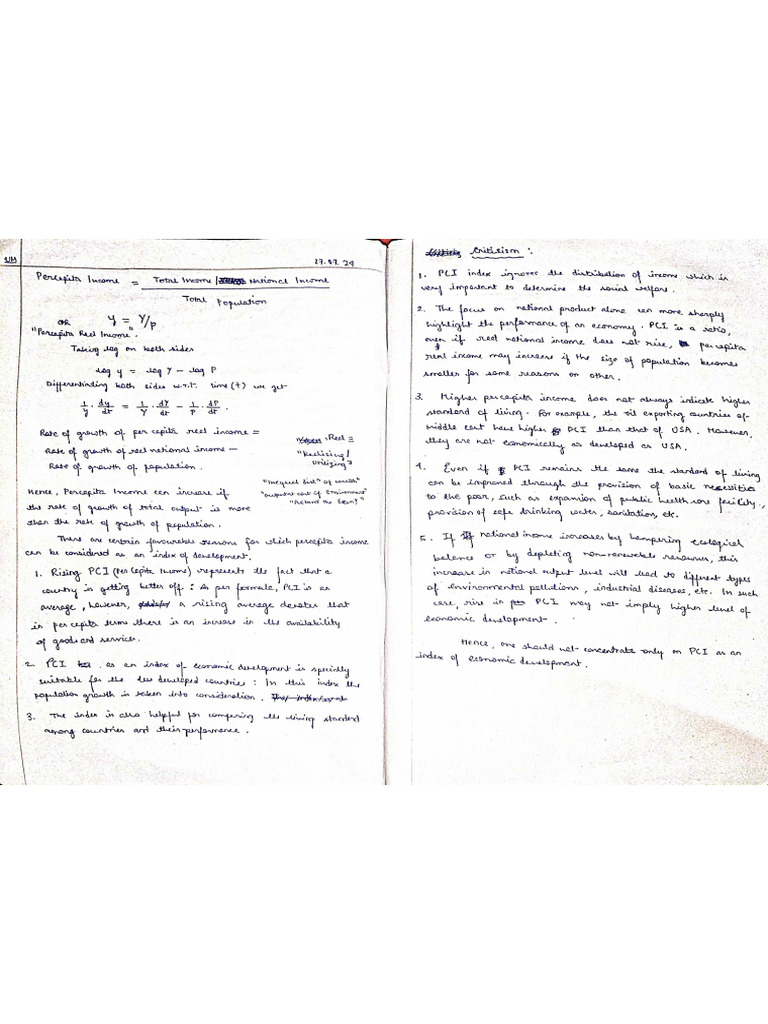 UM
27.07.24
Percapita Income = Total Income / National Income
Total Population
OR y = Y/P
"Percapita Real Income".
Taking log on both sides
log y = log Y - log P
Differentiating both sides w.r.t. time (t) we get
1/y . dy/dt = 1/Y . dY/dt - 1/P . dP/dt .
Rate of growth of per capita real income =
Rate of growth of real national income -
Rate of growth of population .
Real =
"Realizing/
Utilizing"
"Unequal dist" of wealth"
"Outputs cost of Environment"
"Behind the Scene?"
Hence, Percapita Income can increase if
the rate of growth of total output is more
than the rate of growth of population.
There are certain favourable reasons for which percapita income
can be considered as an index of development.
1. Rising PCI (Per Capita Income) represents the fact that a
country is getting better off : As per formula, PCI is an
average, however, a rising average denotes that
in per capita terms there is an increase in the availability
of goods and services.
2. PCI , as an index of economic development is specially
suitable for the less developed countries : In this index the
population growth is taken into consideration.
3. The index is also helpful for comparing the living standard
among countries and their performance .
Criticism :
1. PCI index ignores the distribution of income which is
very important to determine the social welfare .
2. The focus on national product alone can more sharply
highlight the performance of an economy. PCI is a ratio,
even if real national income does not rise, percapita
real income may increase if the size of population becomes
smaller for some reasons or other.
3. Higher percapita income does not always indicate higher
standard of living. For example, the oil exporting countries of
middle east have higher PCI than that of USA. However,
they are not economically as developed as USA.
4. Even if PCI remains the same the standard of living
can be improved through the provision of basic necessities
to the poor, such as expansion of public health care facility,
provision of safe drinking water, sanitation, etc.
5. If national income increases by hampering ecological
balance or by depleting non-renewable resources, this
increase in national output level will lead to different types
of environmental pollutions, industrial diseases, etc. In such
case, rise in PCI may not imply higher level of
economic development.
Hence, one should not concentrate only on PCI as an
index of economic development.